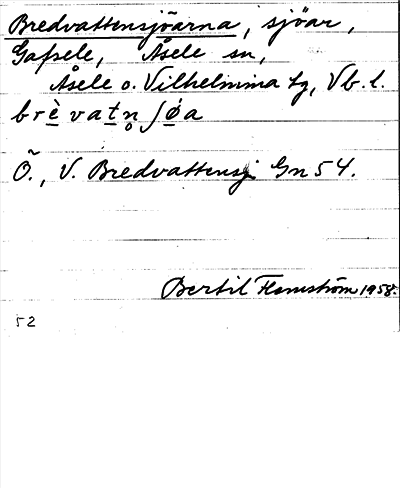 Bredvattensjöarna, sjöar,
Gafsele, Åsele sn,
Åsele o. Vilhelmina tg, Vb. l.
brèvatn̥ʃǿa
Õ., V. Bredvattensj Gn 54.
Bertil Flemström 1958.
52